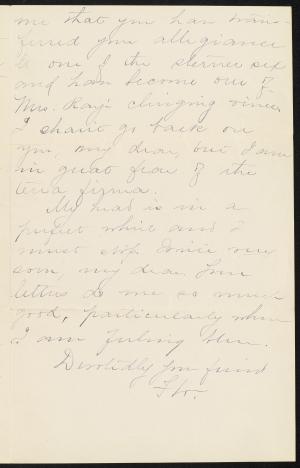 me that you have trans-
ferred your allegiance
to one of the sterner sex
and have become one of
Mrs. Ray's clinging vines
I shan't go back on
you, my dear, but I am
in great fear of the
terra firma.
My head is in a
perfect whirl and I
must stop. Write very
soon, my dear. Your
letters do me so much
good, particularly when
I am feeling blue.
Devotedly your friend
Flo.